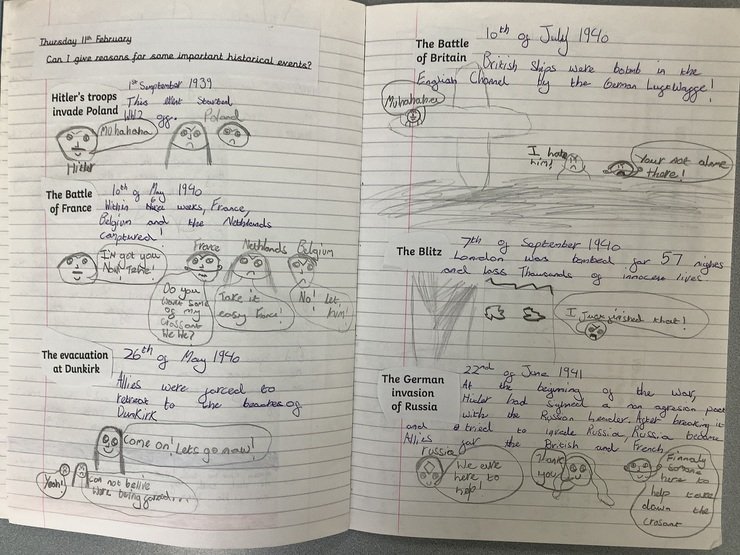 Thursday 11th February
Can I give reasons for some important historical events?
Hitler's troops
invade Poland
1st Semptember 1939
This
WW2
Poland
Muhahaha
Hitler
The Battle
of France
10th of May 1940
Within 6 weeks, France,
Belgium and the Nethlands
France Nethlands Belgium
I'v got you
Now
Do you
want some
of my
Crossant
We We?
Take it
easy
No!
him!
The evacuation
at Dunkirk
26th of May 1940
Allies were forced to
retreat to the beaches of
Dunkirk
Come on! Lets go now!
Yeah!
Can not belive
were being forced...
The Battle
of Britain
10th of July 1940
British ships were bomb in the
English Channel by the German
Muhahaha
I hate
him!
Your not alone
there!
The Blitz
7th of September 1940
London was bombed for 57 nights
and loss Thousands of innocent lives
I Just inished that!
The German
invasion
of Russia
22nd of June 1941
At the begining of the War,
Hitler had signed a non agresion pact
with the Russian leader. After breaking it
and tried to invade Russia, Russia became
Allies for the British and French
russia
We are
here to
help!
Thank
you
Finnaly
someone
here to
help take
down the
crosant